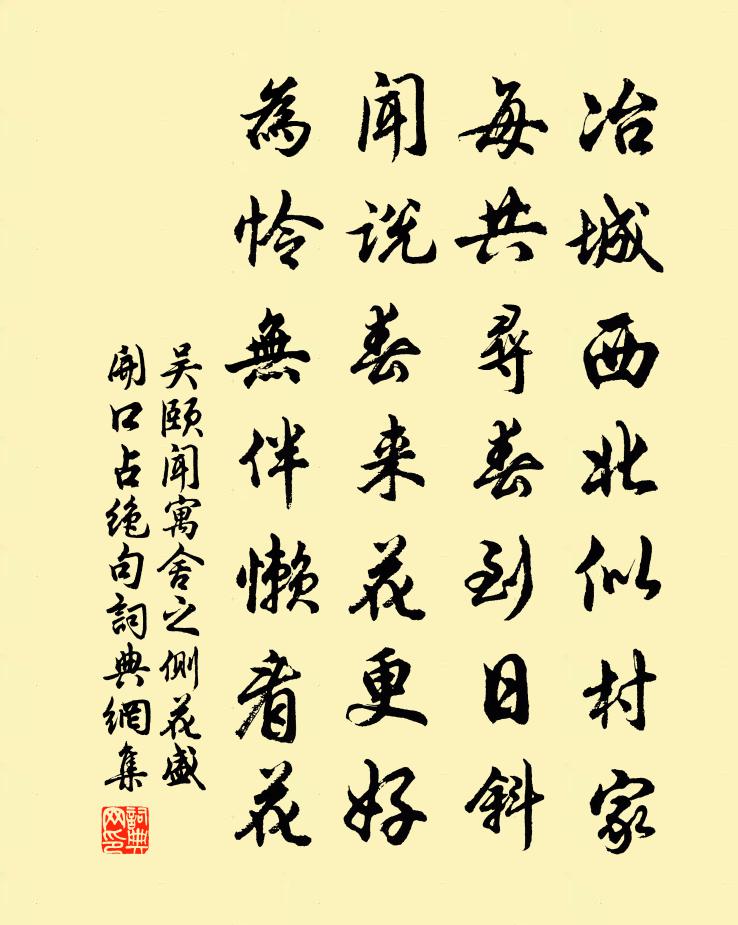 冶城西北似村家
每共尋春到日斜
闻説春来花更好
為怜無伴懒看花
吴颐闻寓舍之侧花盛
開口占绝句詞典網集
詞典
网印